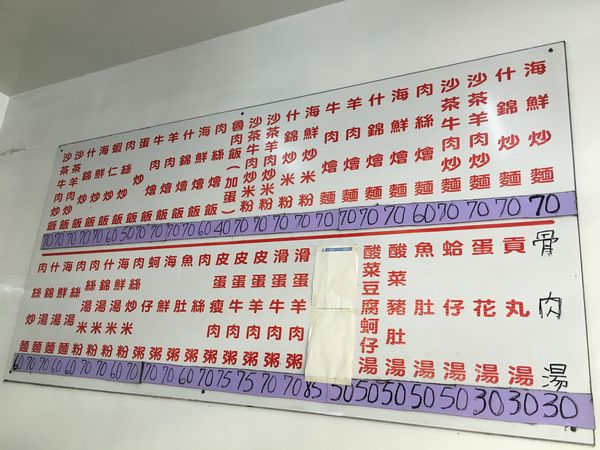 海鮮炒麵 70
什錦炒麵 70
沙茶羊肉炒麵 70
沙茶牛肉炒麵 70
肉絲燴麵 60
海鮮燴麵 70
什錦燴麵 70
羊肉燴麵 70
牛肉燴麵 70
海鮮炒米粉 70
什錦炒米粉 70
沙茶羊肉炒米粉 70
沙茶牛肉炒米粉 70
魯肉飯(加蛋) 40
肉絲燴飯 60
海鮮燴飯 70
什錦燴飯 70
羊肉燴飯 70
牛肉燴飯 70
蛋炒飯 50
肉絲炒飯 60
蝦仁炒飯 70
海鮮炒飯 70
什錦炒飯 70
沙茶羊肉炒飯 70
沙茶牛肉炒飯 70
骨肉湯 30
貢丸湯 30
蛋花湯 30
蛤仔湯 50
魚肚湯 50
酸菜豬肚湯 50
酸菜豆腐蚵仔湯 50
50
85
滑蛋羊肉粥 70
滑蛋牛肉粥 70
皮蛋羊肉粥 75
皮蛋牛肉粥 75
皮蛋瘦肉粥 70
肉絲粥 60
魚肚粥 70
海鮮粥 70
蚵仔粥 70
肉絲炒米粉 60
海鮮湯米粉 70
什錦湯米粉 70
肉絲湯米粉 60
肉絲湯麵 60
海鮮湯麵 70
什錦湯麵 70
肉絲炒麵 60